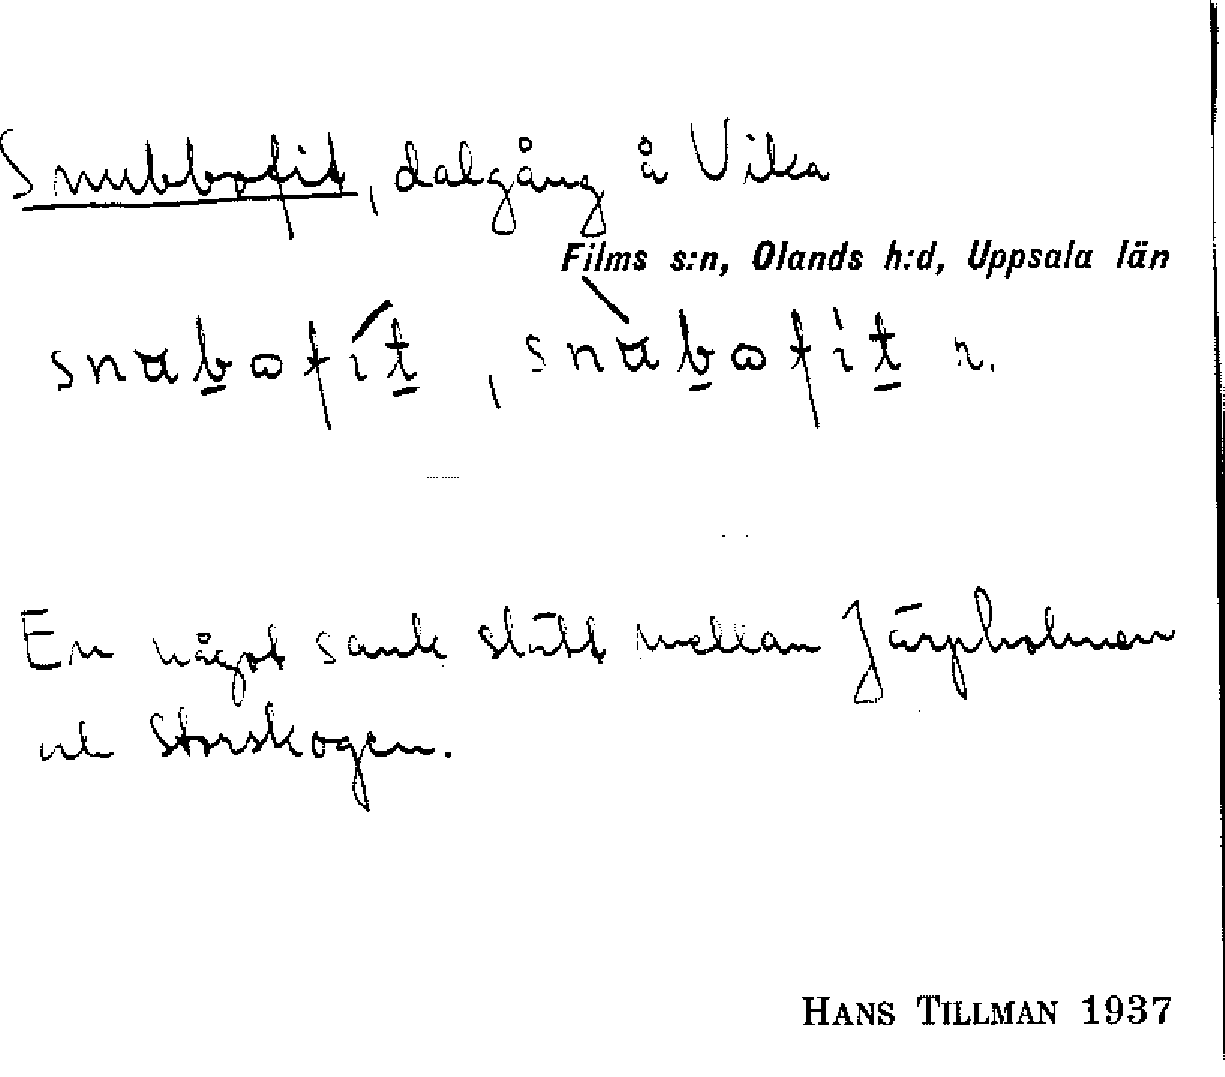 Snubbofit, dalgång å Vika
Films s:n, Olands h:d, Uppsala län
En något sank slätt mellan Järpholmen
och Storskogen.
HANS TILLMAN 1937